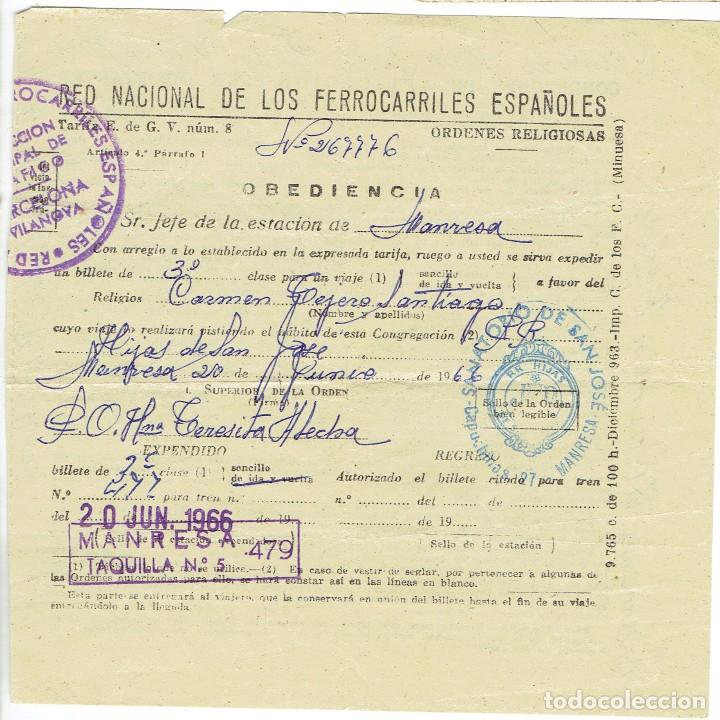 RED NACIONAL DE LOS FERROCARRILES ESPAÑOLES
Tarifa E. de G. V. núm. 8
ORDENES RELIGIOSAS
Artículo 4.° Párrafo 1
Nº 267776
OBEDIENCIA
Sr. Jefe de la estación de Manresa
Con arreglo a lo establecido en la expresada tarifa, ruego a usted se sirva expedir
un billete de 3ª clase para un viaje (1) sencillo
de ida y vuelta a favor del
Religios Carmen Tejero Santiago
(Nombre y apellidos)
cuyo viaje lo realizará vistiendo el hábito de esta Congregación (2) RR.
Hijas de San José
Manresa 20 de Junio de 1966
EL SUPERIOR DE LA ORDEN
(Firma)
Sello de la Orden
bien legible
P.O. Hna Teresita
EXPENDIDO
REGRESO
billete de clase (1) sencillo
de ida y vuelta
Autorizado el billete citado para tren
N.° para tren n.°
n.° de de
del de 19
19
20 JUN. 1966
MANRESA 479
TAQUILLA N.° 5
(Sello de la estación expendedora)
(Sello de la estación)
(1) Táchese lo que no se utilice.—(2) En caso de vestir de seglar, por pertenecer a algunas de
las Ordenes autorizadas para ello, se hará constar así en las líneas en blanco.
Esta parte se entregará al viajero, que la conservará en unión del billete hasta el fin de su viaje,
entregándolo a la llegada.
9.765 c. de 100 h.-Diciembre 963.-Imp. G. de los F. C.- (Minuesa)
FERROCARRILES ESPAÑOLES RED
BARCELONA
VILANOVA
SANATORIO DE SAN JOSÉ
RR. HIJAS
MANRESA
todocoleccion